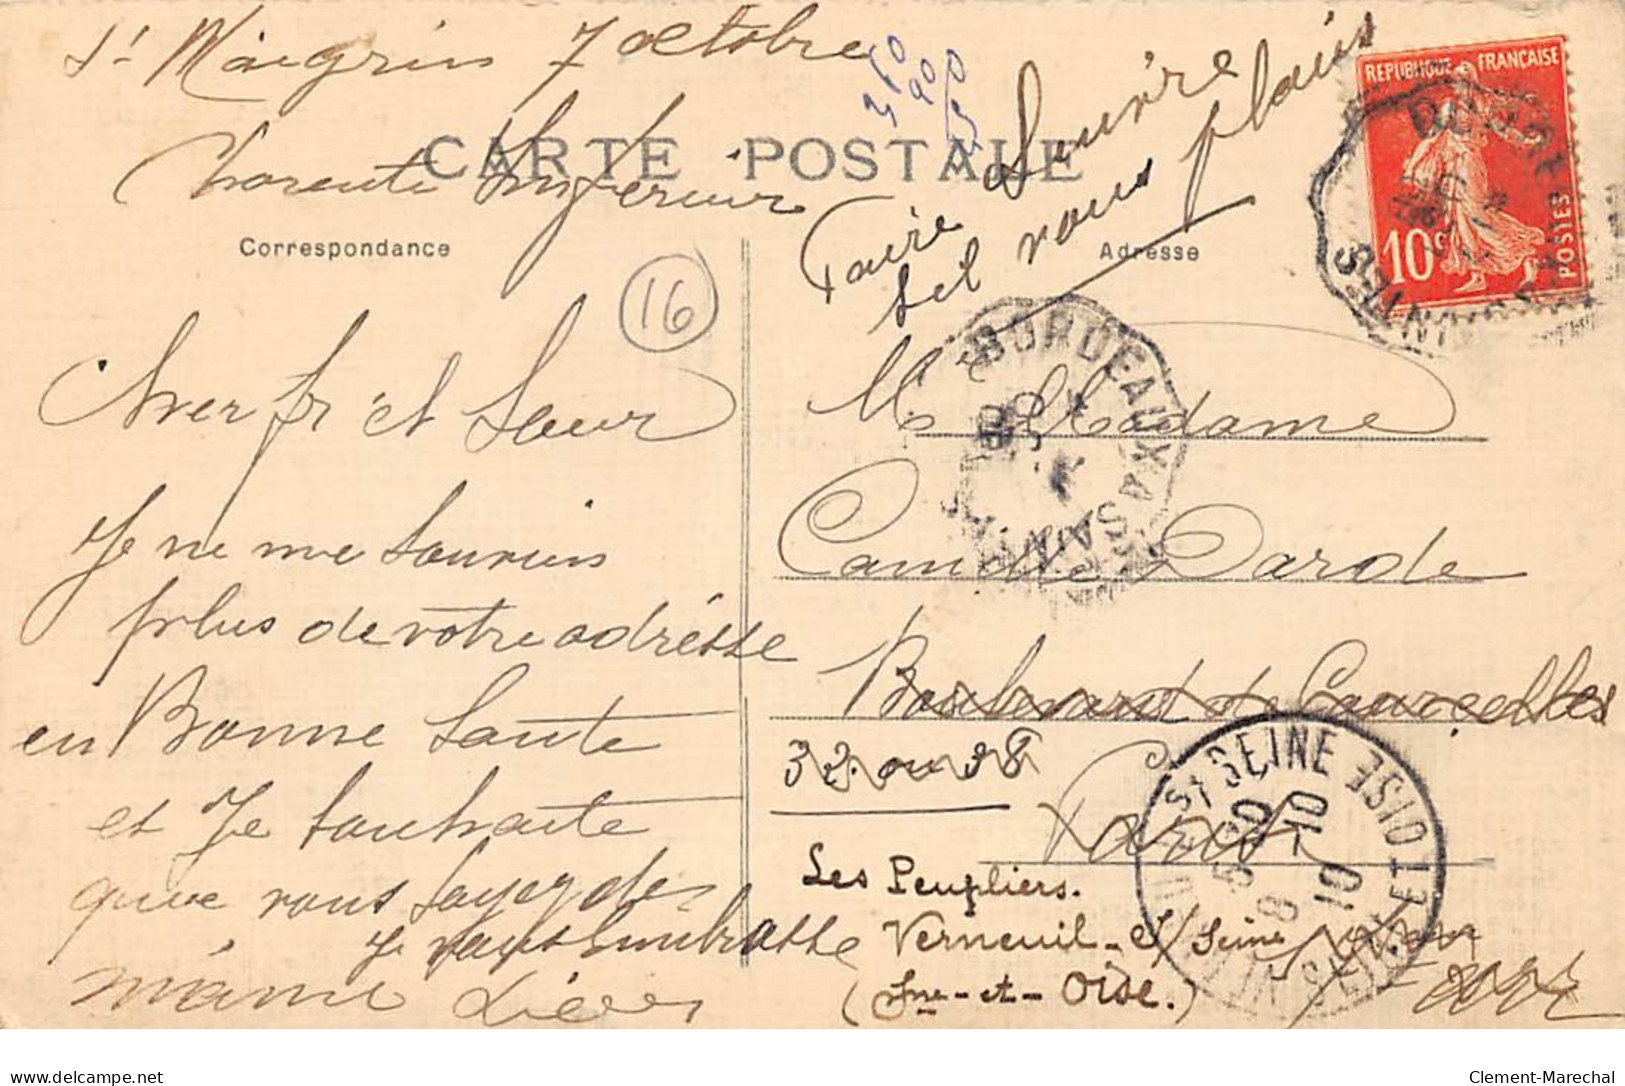 St Maigrin 7 octobre
Charente Inferieur
CARTE POSTALE
Correspondance
Adresse
16
Faire Suivre
Sil vous plais
REPUBLIQUE FRANÇAISE
10c
POSTES
BORDEAUX A SAINTES
Cher fr et Seur
Je ne me Souviens
plus de votre adrésse
en Bonne Santé
et Je Souhaite
que vous Soyez de
Je vous Embrasse
même
M Madame
Camille Darde
Boulevard de Courcelles
32 ou 38
Paris
Les Peupliers.
Verneuil-s/Seine
(Sne-et-Oise.)
SEINE ET OISE
VERNEUIL SUR SEINE
5 20
8 -10
10
delcampe.net
Clement-Marechal